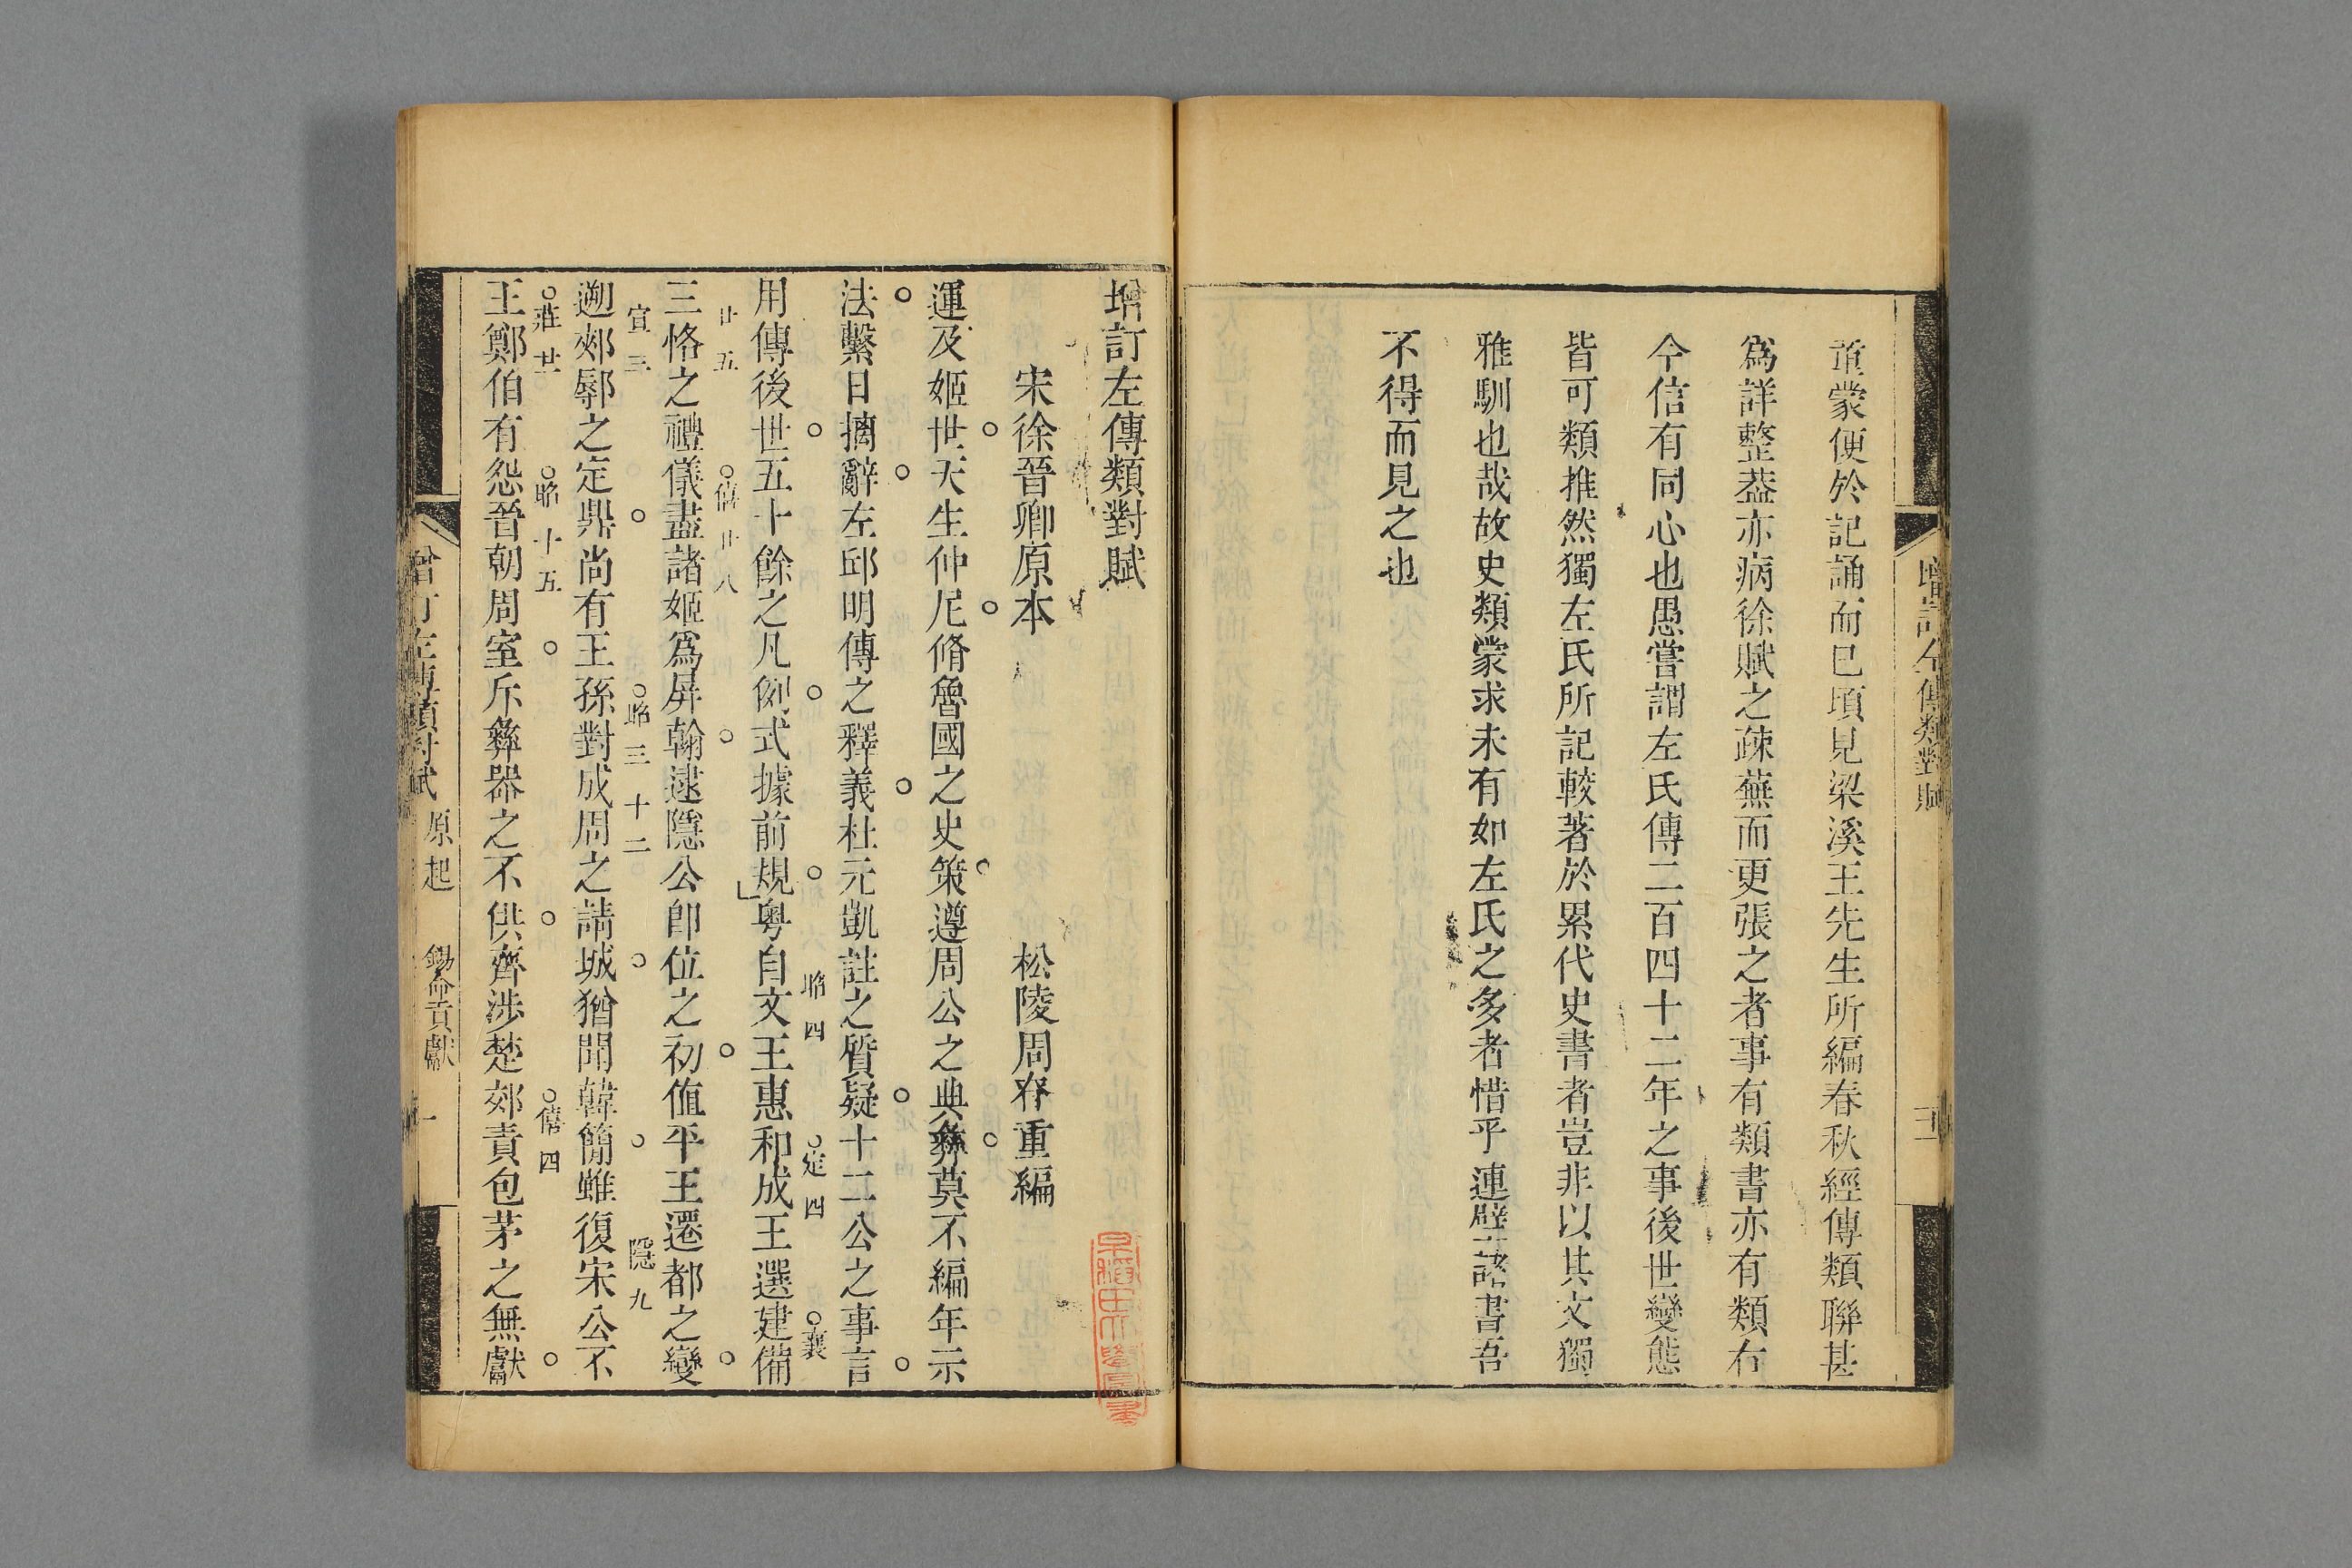 童蒙便於記誦而已頃見梁溪王先生所編春秋經傳類聯甚
爲詳整葢亦病徐賦之疎蕪而更張之者事有類書亦有類右
今信有同心也愚嘗謂左氏傳二百四十二年之事後世變態
皆可類推然獨左氏所記較著於累代史書者豈非以其文獨
雅馴也哉故史類蒙求未有如左氏之多者惜乎連壁諸書吾
不得而見之也
增訂左傳類對賦
宋徐晉卿原本 松陵周春重編
運及姬世天生仲尼脩魯國之史策遵周公之典彝莫不編年示
法繫日摛辭左邱明傳之釋義杜元凱註之質疑十二公之事言
用傳後世五十餘之凡例式據前規粤自文王惠和成王選建備
昭四 定四 襄
三恪之禮儀盡諸姬爲屏翰逮隱公卽位之初値平王遷都之變
廿五 僖廿八
遡郟鄏之定鼎尚有王孫對成周之請城猶聞韓簡雖復宋公不
宣三 昭三十二 隱九
王鄭伯有怨晉朝周室斥彝器之不供齊涉楚郊責包茅之無獻
莊廿 昭十五 僖四
增訂左傳類對賦 原起 錫命貢獻 一